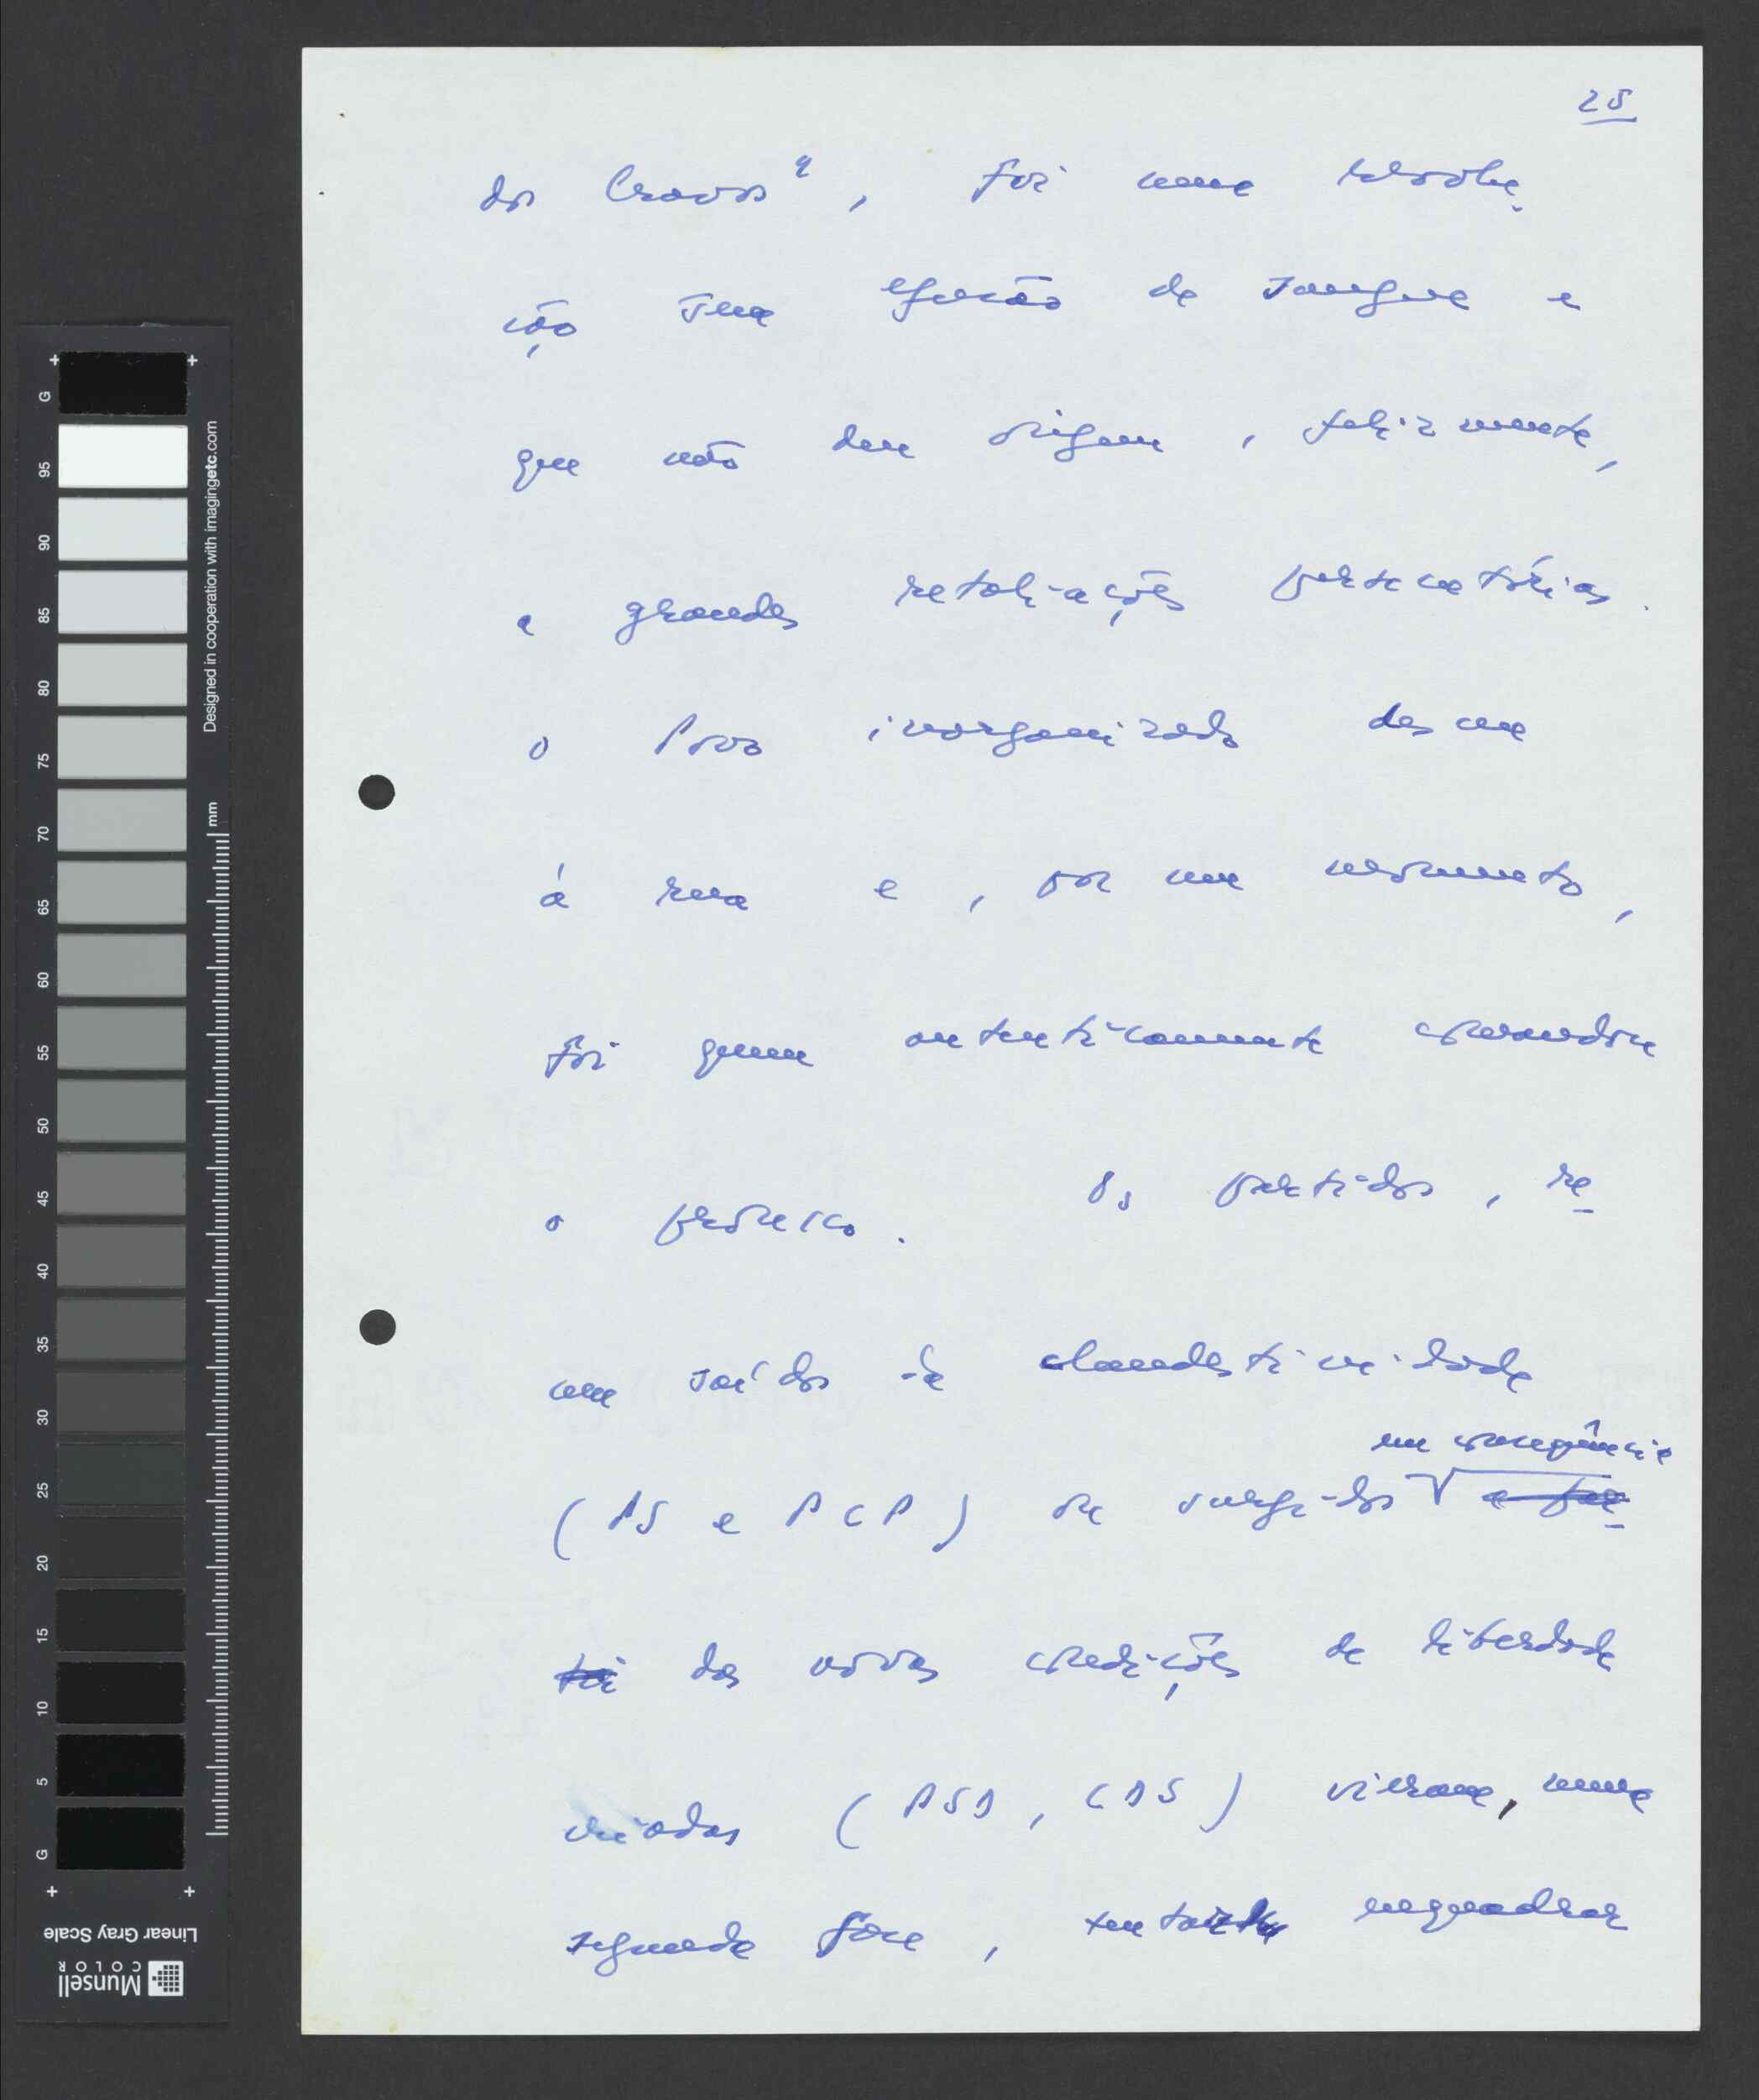 25
dos Cravos", foi uma revolu-
ção sem efusão de sangue e
que não deu origem, felizmente,
a grandes retaliações persecutórias.
O Povo inorganizado desceu
à rua e, por um momento,
foi quem autenticamente comandou
o processo. Os partidos, re-
cem saídos da clandestinidade
em consequência
(PS e PCP) ou surgidos a par-
tir das novas condições de liberdade
criadas (PSD, CDS) vieram, numa
segunda fase, enquadrar
G 95 90 85 80 75 70 65 60 55 50 45 40 35 30 25 20 15 10 5 G
Designed in cooperation with imagingetc.com
mm
Linear Gray Scale
Munsell
COLOR